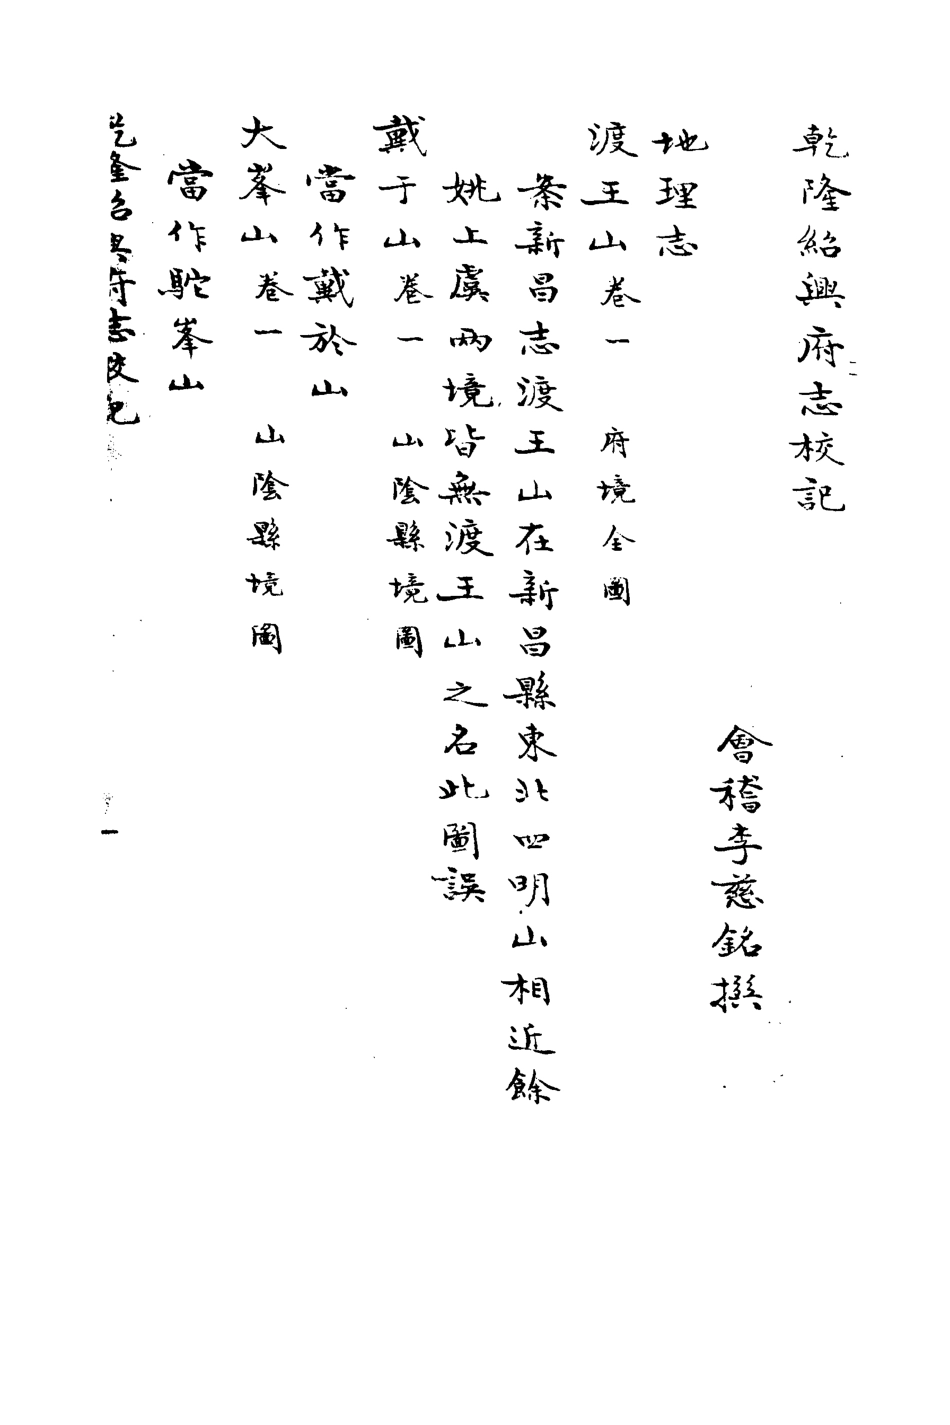 乾隆紹興府志校記
會稽李慈銘撰
地理志
渡王山卷一 府境全圖
案新昌志渡王山在新昌縣東北四明山相近餘
姚上虞兩境皆無渡王山之名此圖誤
戴于山卷一 山陰縣境圖
當作戴於山
大峯山卷一 山陰縣境圖
當作駝峯山
乾隆紹興府志校記
一